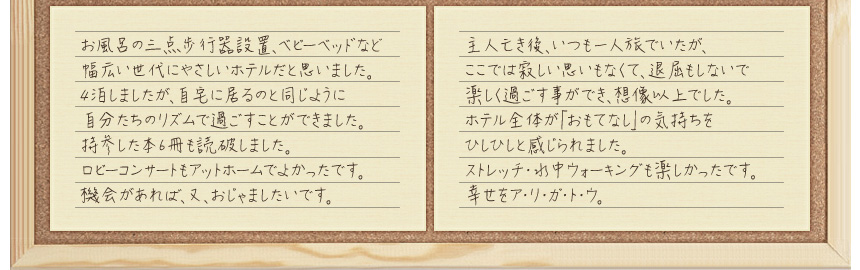 お風呂の三点歩行器設置、ベビーベッドなど
幅広い世代にやさしいホテルだと思いました。
4泊しましたが、自宅に居るのと同じように
自分たちのリズムで過ごすことができました。
持参した本6冊も読破しました。
ロビーコンサートもアットホームでよかったです。
機会があれば、又、おじゃましたいです。
主人亡き後、いつも一人旅でいたが、
ここでは寂しい思いもなくて、退屈もしないで
楽しく過ごす事ができ、想像以上でした。
ホテル全体が「おもてなし」の気持ちを
ひしひしと感じられました。
ストレッチ・水中ウォーキングも楽しかったです。
幸せをア・リ・ガ・ト・ウ。